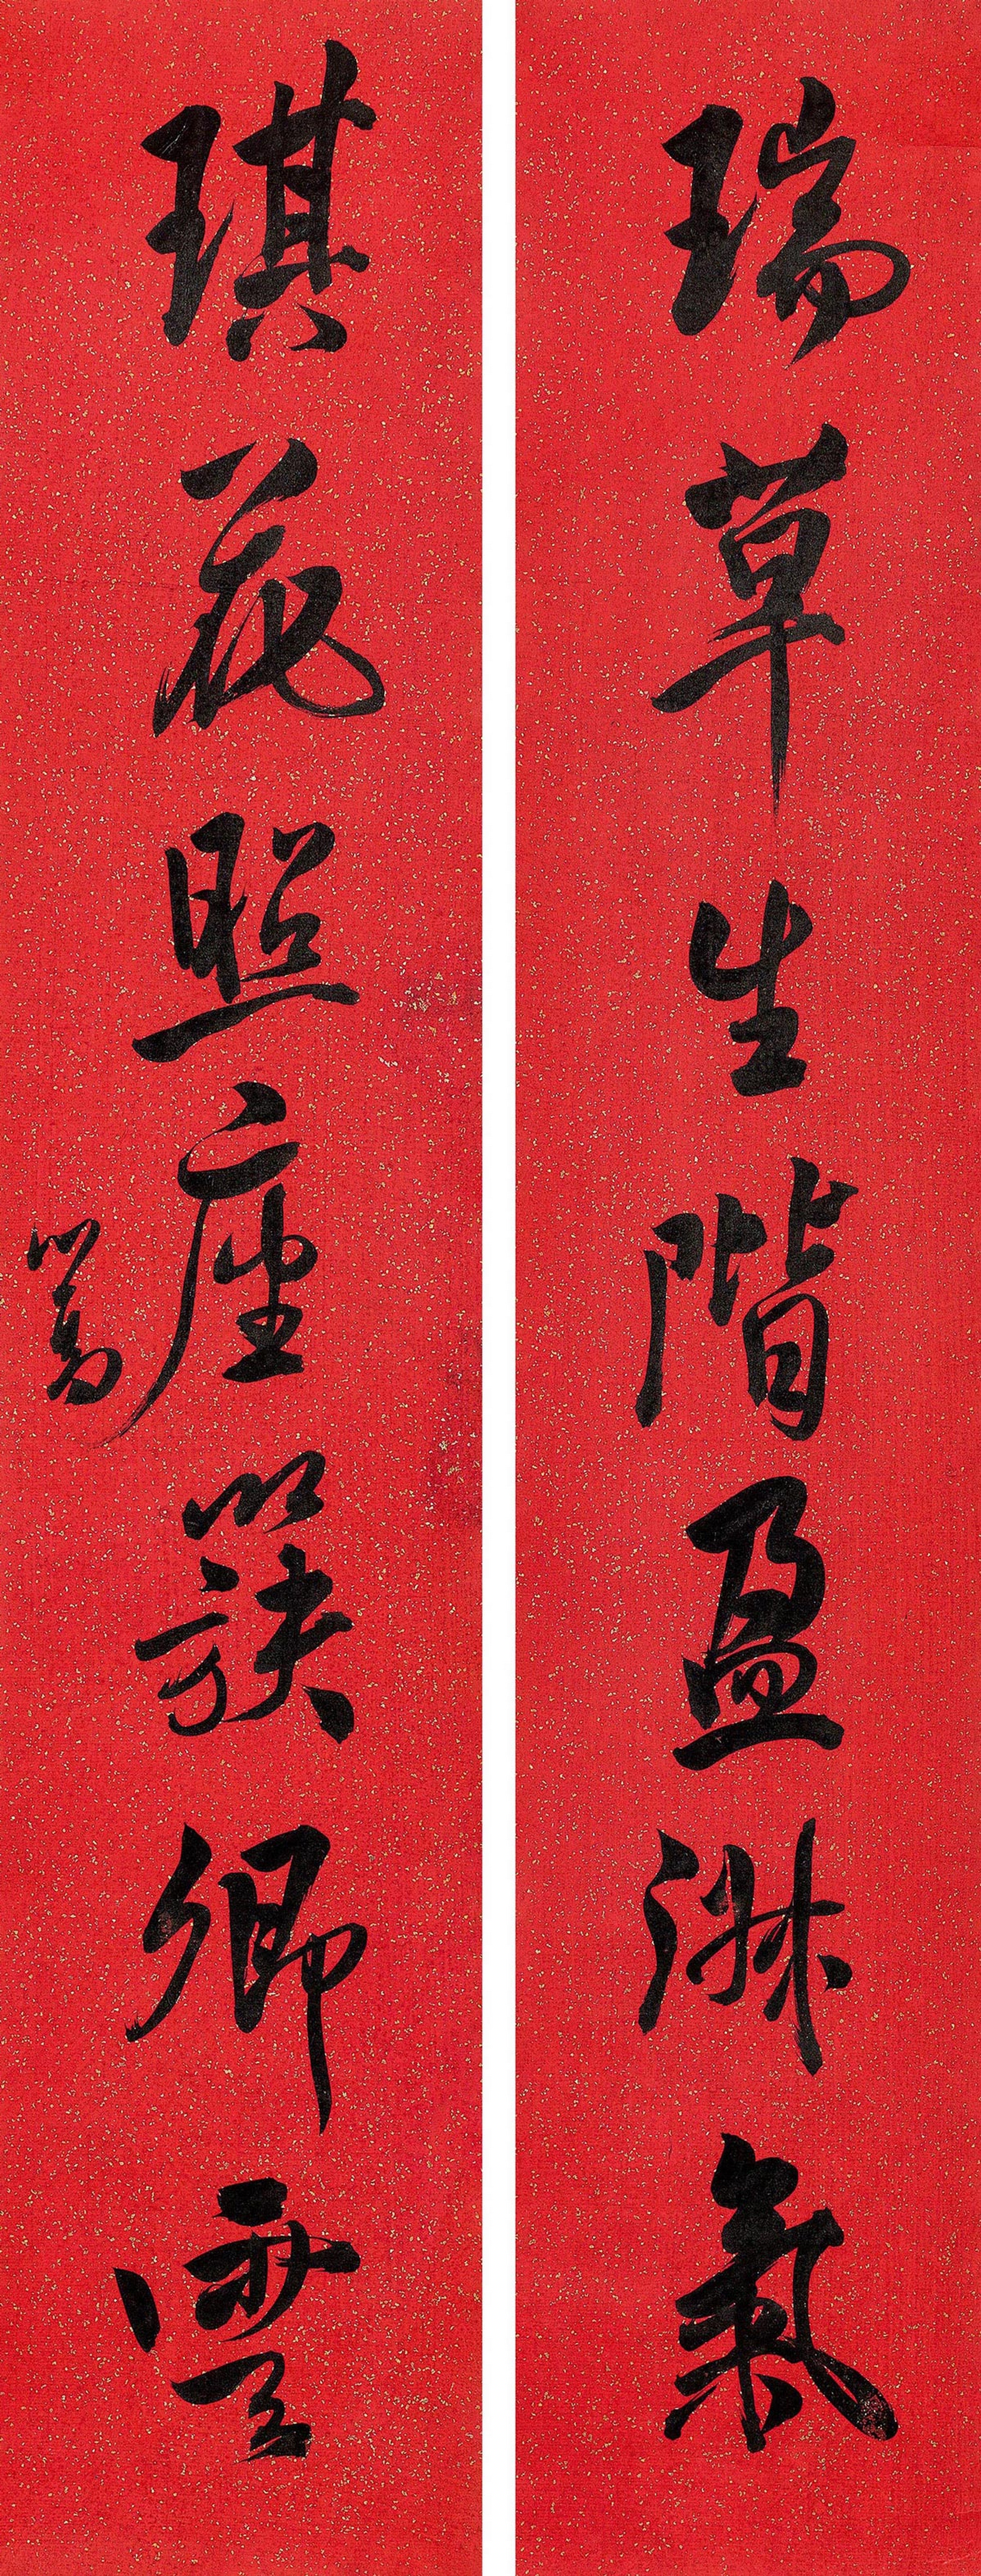 瑞草生階盈淑氣
琪花照座簇卿雲